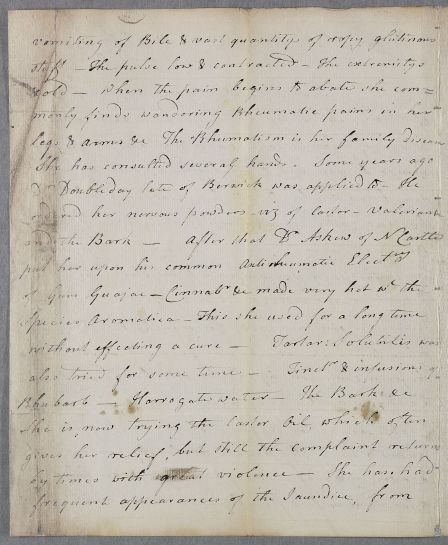 vomiting of Bile & vast quantitys of ropy glutinous
stuff - The pulse low & contracted - The extremitys
cold - when the pain begins to abate she com-
monly finds wandering Rheumatic pains in her
legs & arms &c The Rheumatism is her family disease
She has consulted several hands. Some years ago
Dr Doubleday late of Berwick was applied to - He
her nervous powders - viz of castor - valerian
and the Bark - After that Dr Askew of NCastle
put her upon his common Antirheumatic Electry
of Gum Guajac - Cinnabr &c made very hot wt the
Species Aromatica - This she used for a long time
without effecting a cure - Tartar: Solubilis was
also tried for some time - Tinctr & infusions of
Rhubarb - Harrogate water - The Bark &c
She is now trying the castor Oil, which often
gives her relief, but still the complaint returns
by times with great violence - She has had
frequent appearances of the Jaundice, from